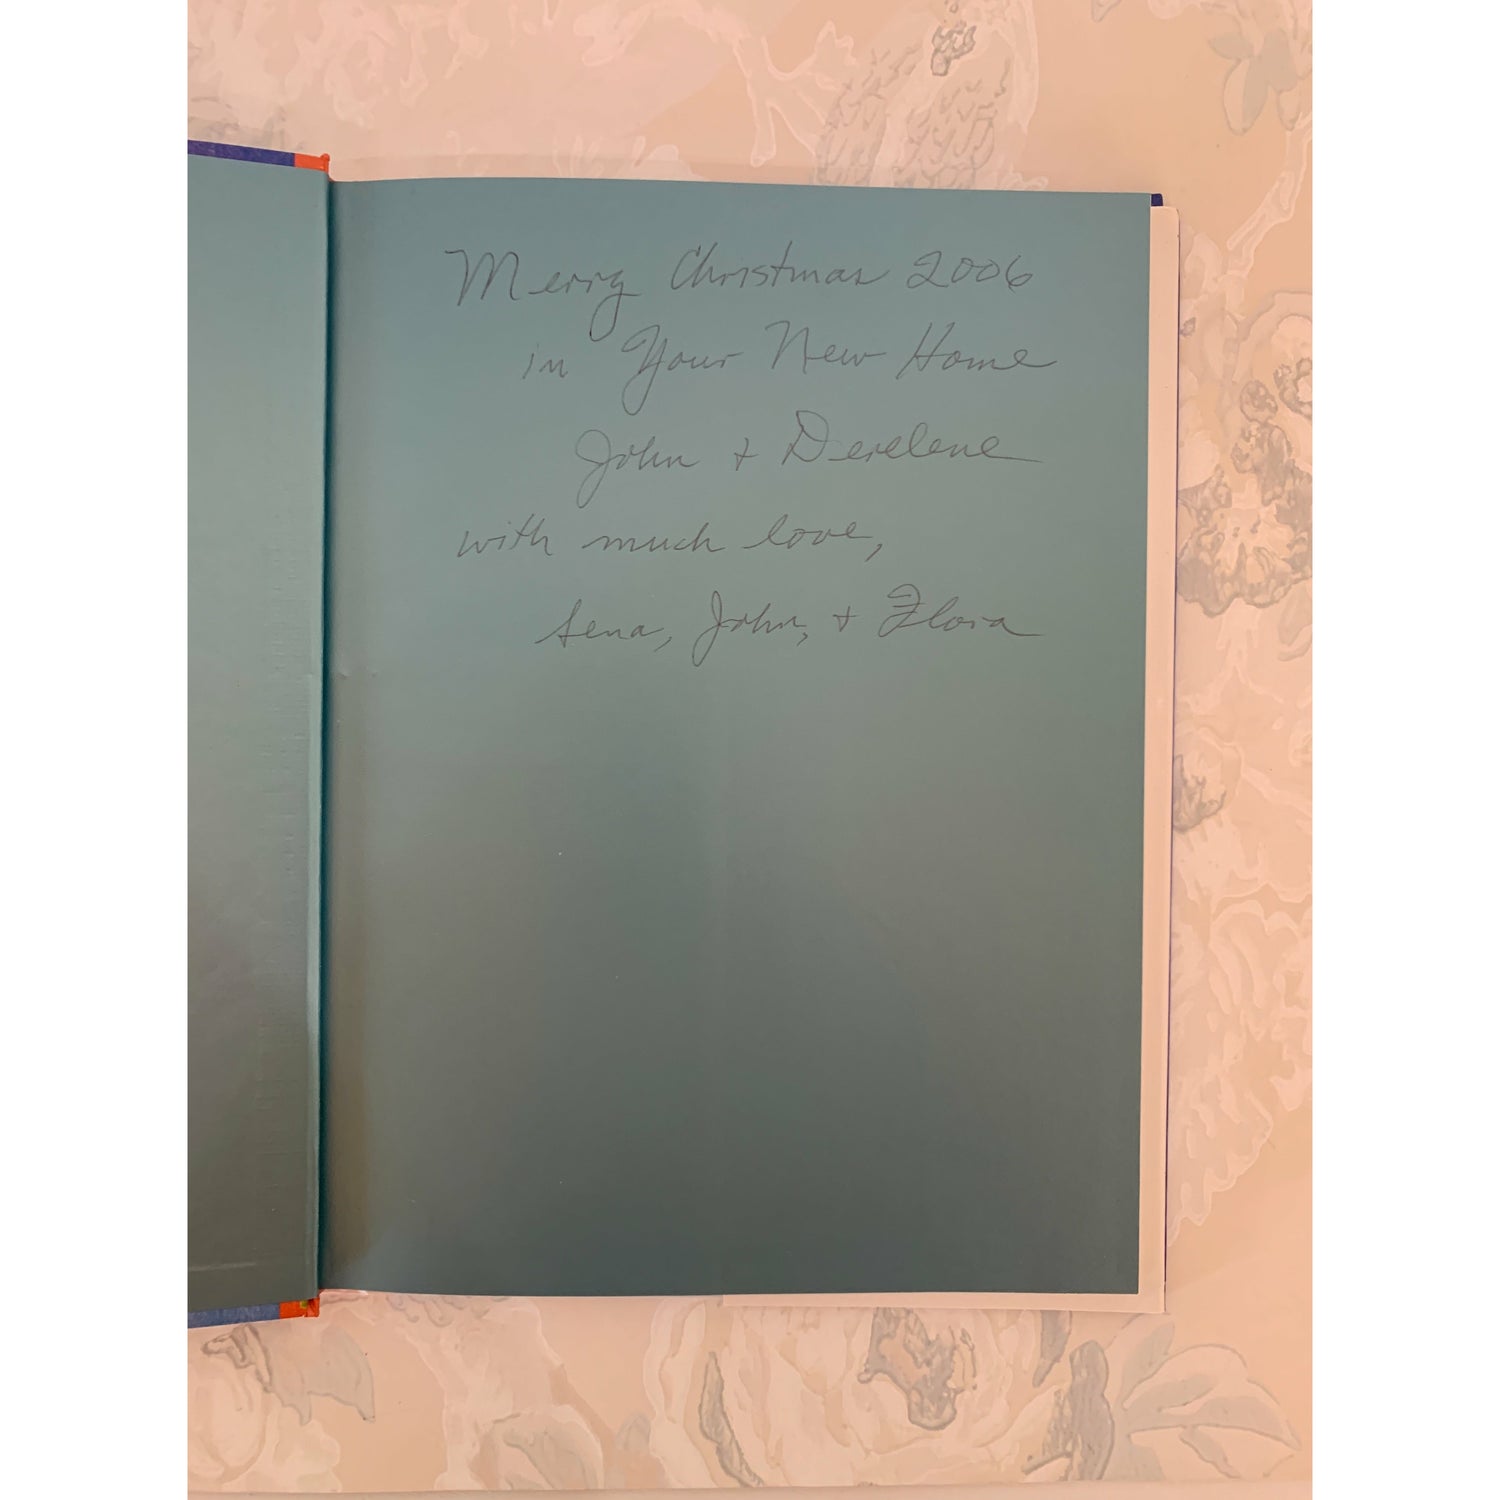 Merry Christmas 2006
in Your New Home
John + Derelene
with much love,
Lena, John, + Flora